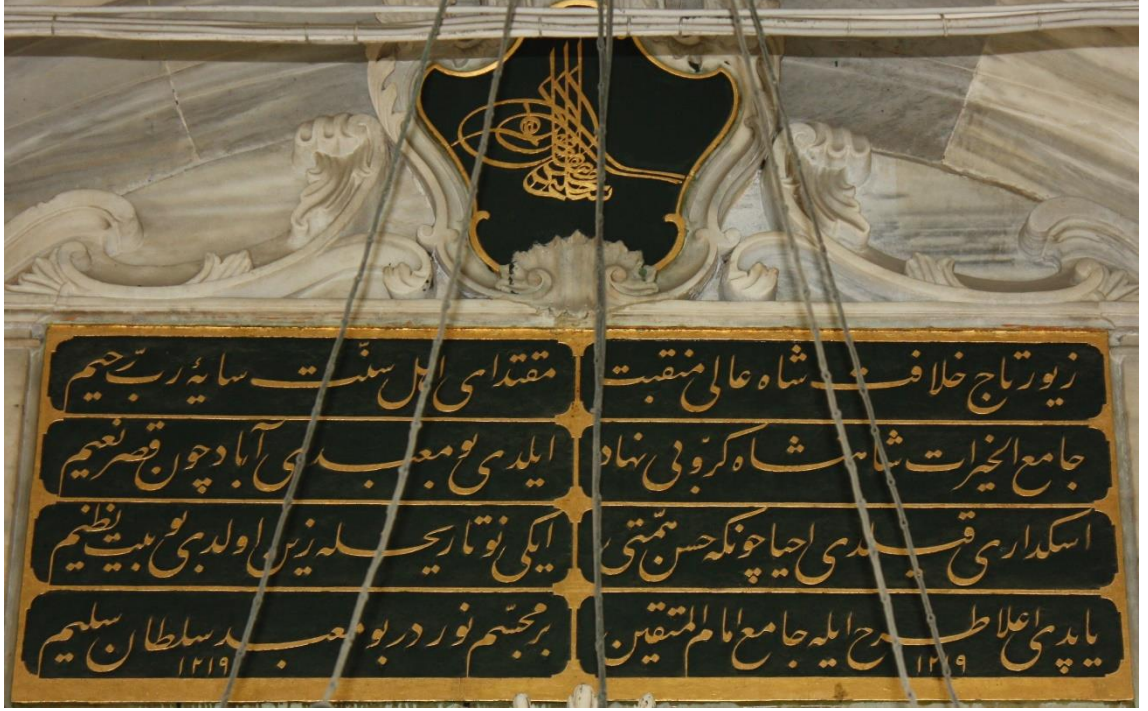 زیور تاج خلافت شاه عالی منقبت
مقتدای اهل سنّت سایۀ ربّ رحیم
جامع الخیرات شاهنشاه کرّوبی نهاد
ایلدی بو معبدی آباد چون قصر نعیم
اسکداری قیلدی احیا چونکه حسن همّتی
ایکی نو تاریخله زین اولدی بو بیت نظیم
یاپدی اعلا طرح ایله جامع امام المتقین ١٢١٩
بر مجسّم نور در بو معبد سلطان سلیم ١٢١٩